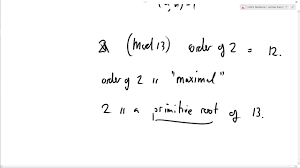 (mod 13) order of 2 = 12.
order of 2 is "maximal"
2 is a primitive root of 13.